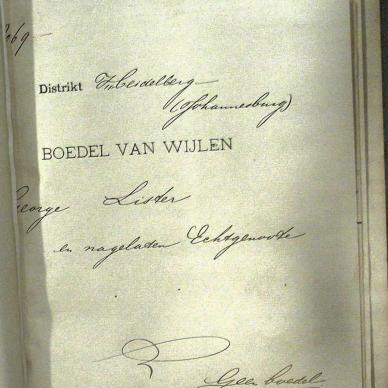 Distrikt Heidelberg
(Johannesburg)
BOEDEL VAN WIJLEN
George Lister
en nagelaten Echtgenoote
Geen boedel